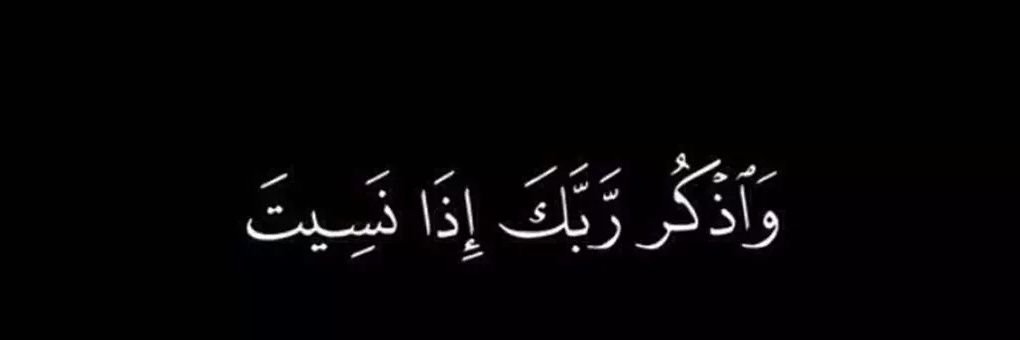 وَٱذْكُر رَّبَّكَ إِذَا نَسِيتَ